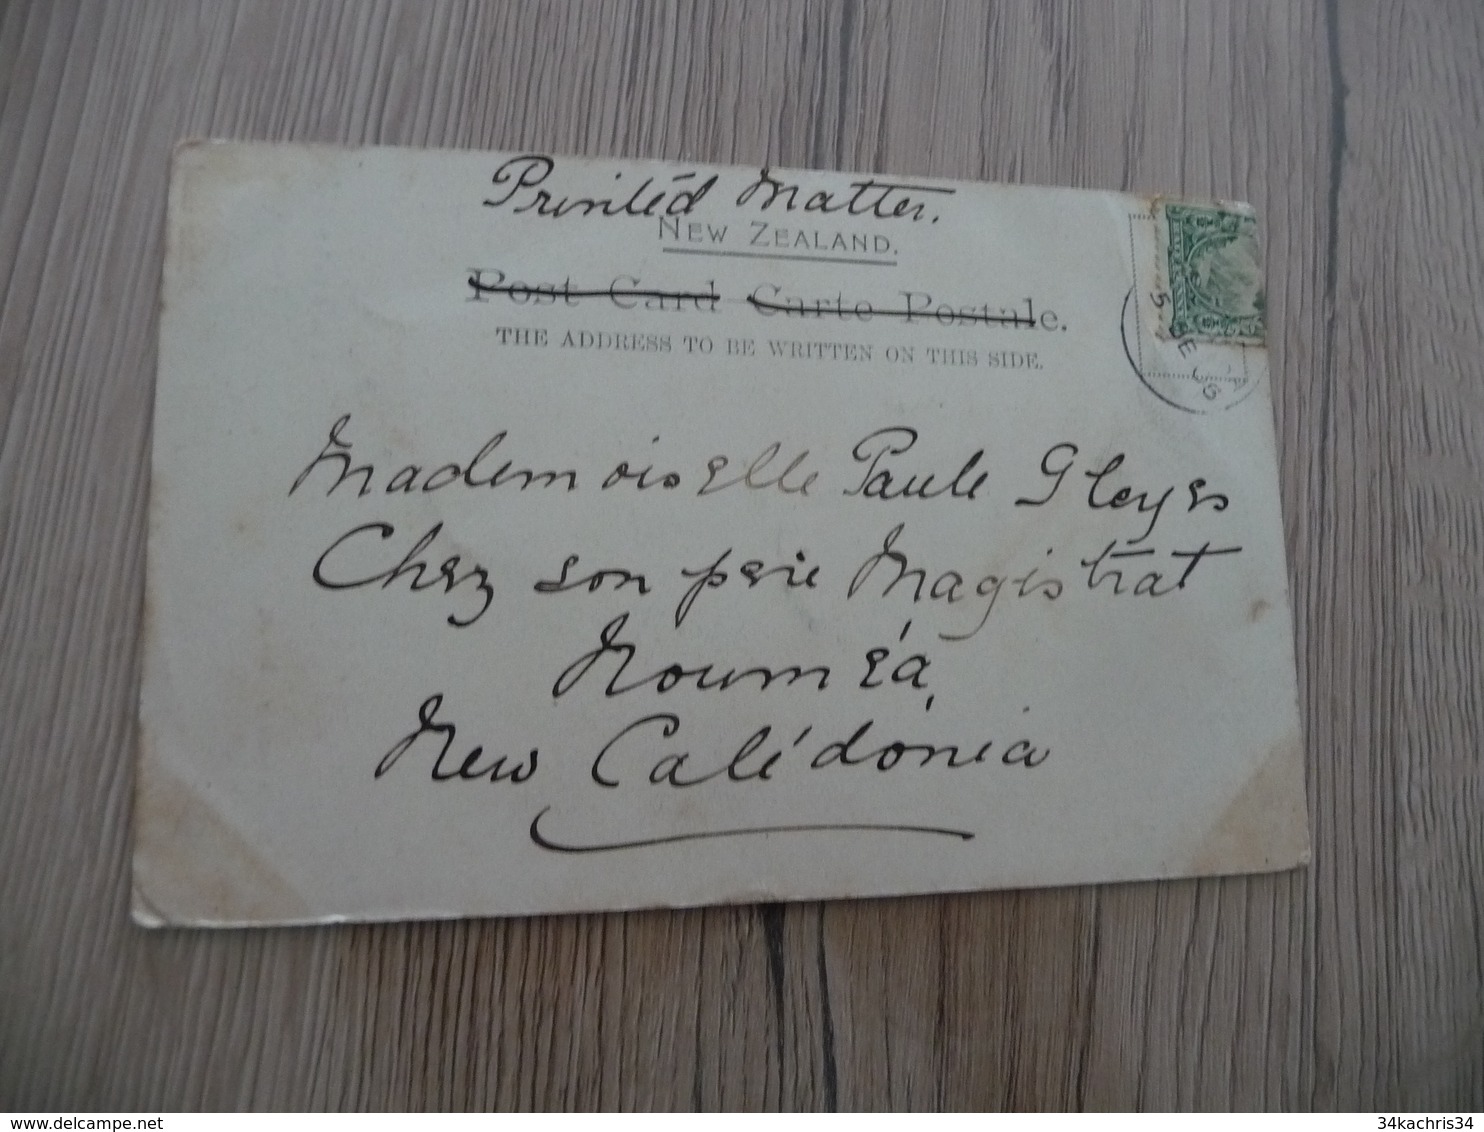 Printéd Matter.
NEW ZEALAND.
Post Card Carte Postale.
THE ADDRESS TO BE WRITTEN ON THIS SIDE.
Mademoiselle Paule Gleyes
Chez son pere Magistrat
Nouméa,
New Calédónia
34kachris34